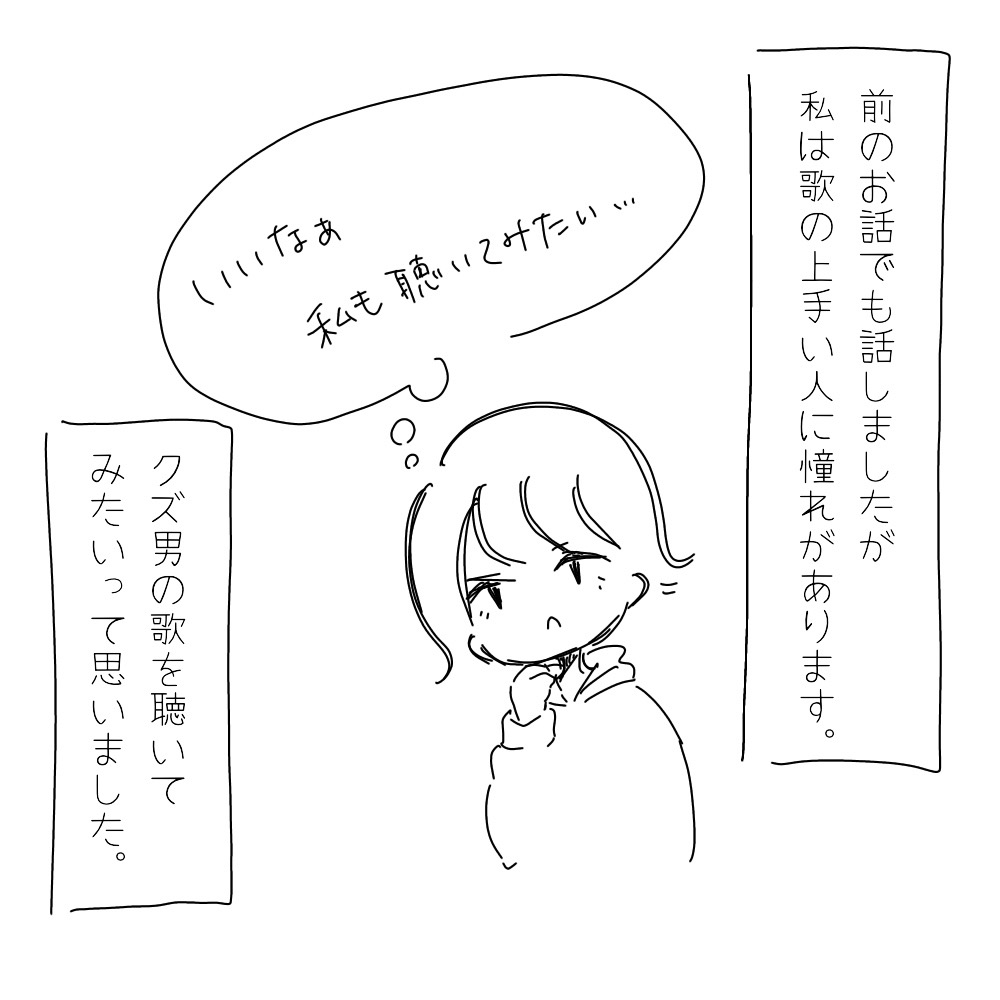 前のお話でも話しましたが
私は歌の上手い人に憧れがあります。
いいなぁ
私も聴いてみたい…
クズ男の歌を聴いて
みたいって思いました。